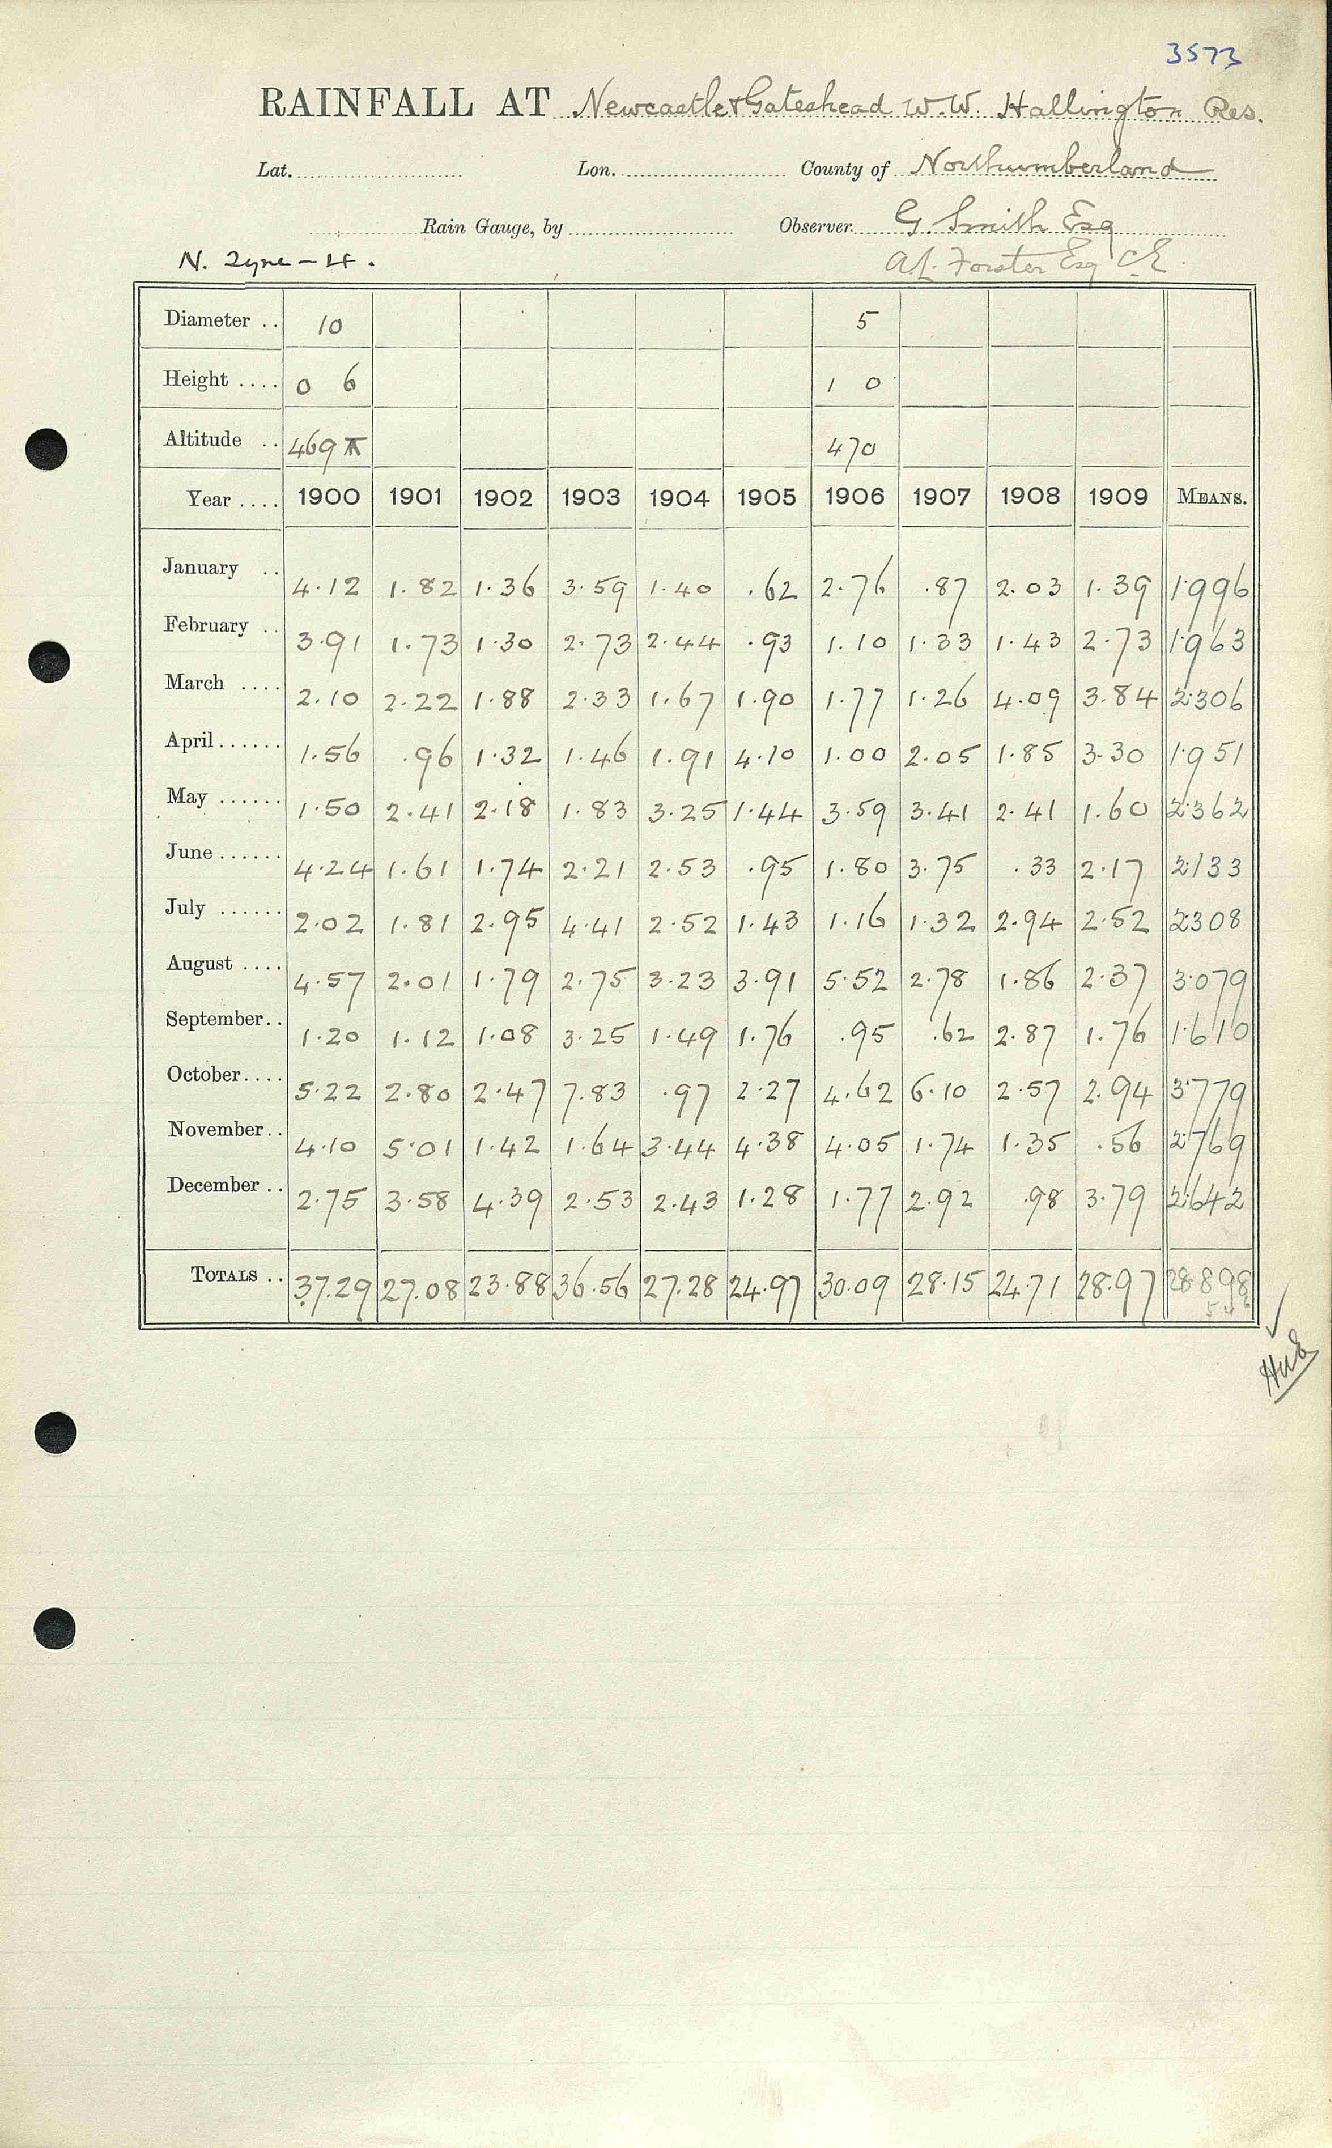 3573
RAINFALL AT Newcastle & Gateshead W.W. Hallington Res.
Lat. Lon. County of Northumberland
Rain Gauge, by Observer. G Smith Esq
N. Tyne - 4. A.L. Forster Esq C.E
Diameter .. 10 5
Height .... 0 6 1 0
Altitude .. 469 T 470
Year .... 1900 1901 1902 1903 1904 1905 1906 1907 1908 1909 MEANS.
January .. 4.12 1.82 1.36 3.59 1.40 .62 2.76 .87 2.03 1.39 1.996
February .. 3.91 1.73 1.30 2.73 2.44 .93 1.10 1.33 1.43 2.73 1.963
March .... 2.10 2.22 1.88 2.33 1.67 1.90 1.77 1.26 4.09 3.84 2.306
April ...... 1.56 .96 1.32 1.46 1.91 4.10 1.00 2.05 1.85 3.30 1.951
May ...... 1.50 2.41 2.18 1.83 3.25 1.44 3.59 3.41 2.41 1.60 2.362
June ...... 4.24 1.61 1.74 2.21 2.53 .95 1.80 3.75 .33 2.17 2.133
July ...... 2.02 1.81 2.95 4.41 2.52 1.43 1.16 1.32 2.94 2.52 2.308
August .... 4.57 2.01 1.79 2.75 3.23 3.91 5.52 2.78 1.86 2.37 3.079
September .. 1.20 1.12 1.08 3.25 1.49 1.76 .95 .62 2.87 1.76 1.610
October .... 5.22 2.80 2.47 7.83 .97 2.27 4.62 6.10 2.57 2.94 3.779
November .. 4.10 5.01 1.42 1.64 3.44 4.38 4.05 1.74 1.35 .56 2.769
December .. 2.75 3.58 4.39 2.53 2.43 1.28 1.77 2.92 .98 3.79 2.642
TOTALS .. 37.29 27.08 23.88 36.56 27.28 24.97 30.09 28.15 24.71 28.97 28.898